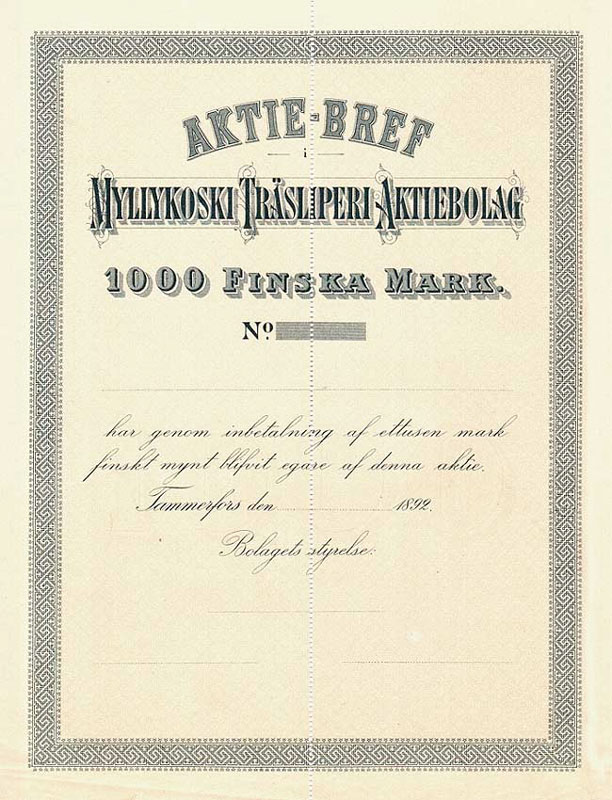 AKTIE-BREF
i
MYLLYKOSKI TRÄSLIPERI AKTIEBOLAG
1000 FINSKA MARK.
No.
har genom inbetalning af ettusen mark
finskt mynt blifvit egare af denna aktie.
Tammerfors den 1892.
Bolagets styrelse: